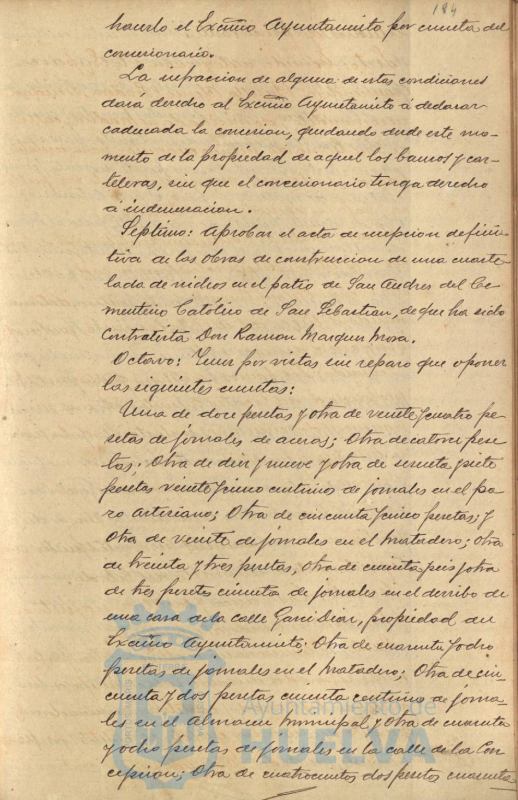 184
hacerlo el Excmo Ayuntamiento por cuenta del
concesionario.
La infraccion de alguna de estas condiciones
dará derecho al Excmo Ayuntamiento á declarar
caducada la concesion, quedando desde este mo-
mento de la propiedad de aquel los bancos y car-
teleras, sin que el concesionario tenga derecho
á indemnacion.
Septimo: Aprobar el acta de recepcion defini-
tiva de las obras de construccion de una cuarte-
lada de nichos en el patio de San Andres del Ce-
menterio Católico de San Sebastian, de que ha sido
Contratista Don Ramon Marquez Mora.
Octavo: Tener por vistas sin reparo que oponer
las siguientes cuentas:
Una de doce pesetas y otra de veinte y cuatro pe-
setas de jornales de aceras; Otra de catorce pese-
tas; Otra de diez y nueve y otra de sesenta y siete
pesetas veinte y cinco centimos de jornales en el po-
zo Artesiano; Otra de cincuenta y cinco pesetas; y
Otra de veinte de jornales en el Matadero; Otra
de treinta y tres pesetas, otra de cuenta y seis y otra
de tres pesetas cincuenta de jornales en el derribo de
una casa de la calle Garci Diaz, propiedad del
Excmo Ayuntamiento; Otra de cuarenta y ocho
pesetas de jornales en el Matadero; Otra de cin-
cuenta y dos pesetas cincuenta centimos de jorna-
les en el Almacen Municipal, y otra de cuarenta
y ocho pesetas de jornales en la calle de la Con-
cepcion; Otra de cuatrocientas dos pesetas cuarenta
Ayuntamiento de
HUELVA